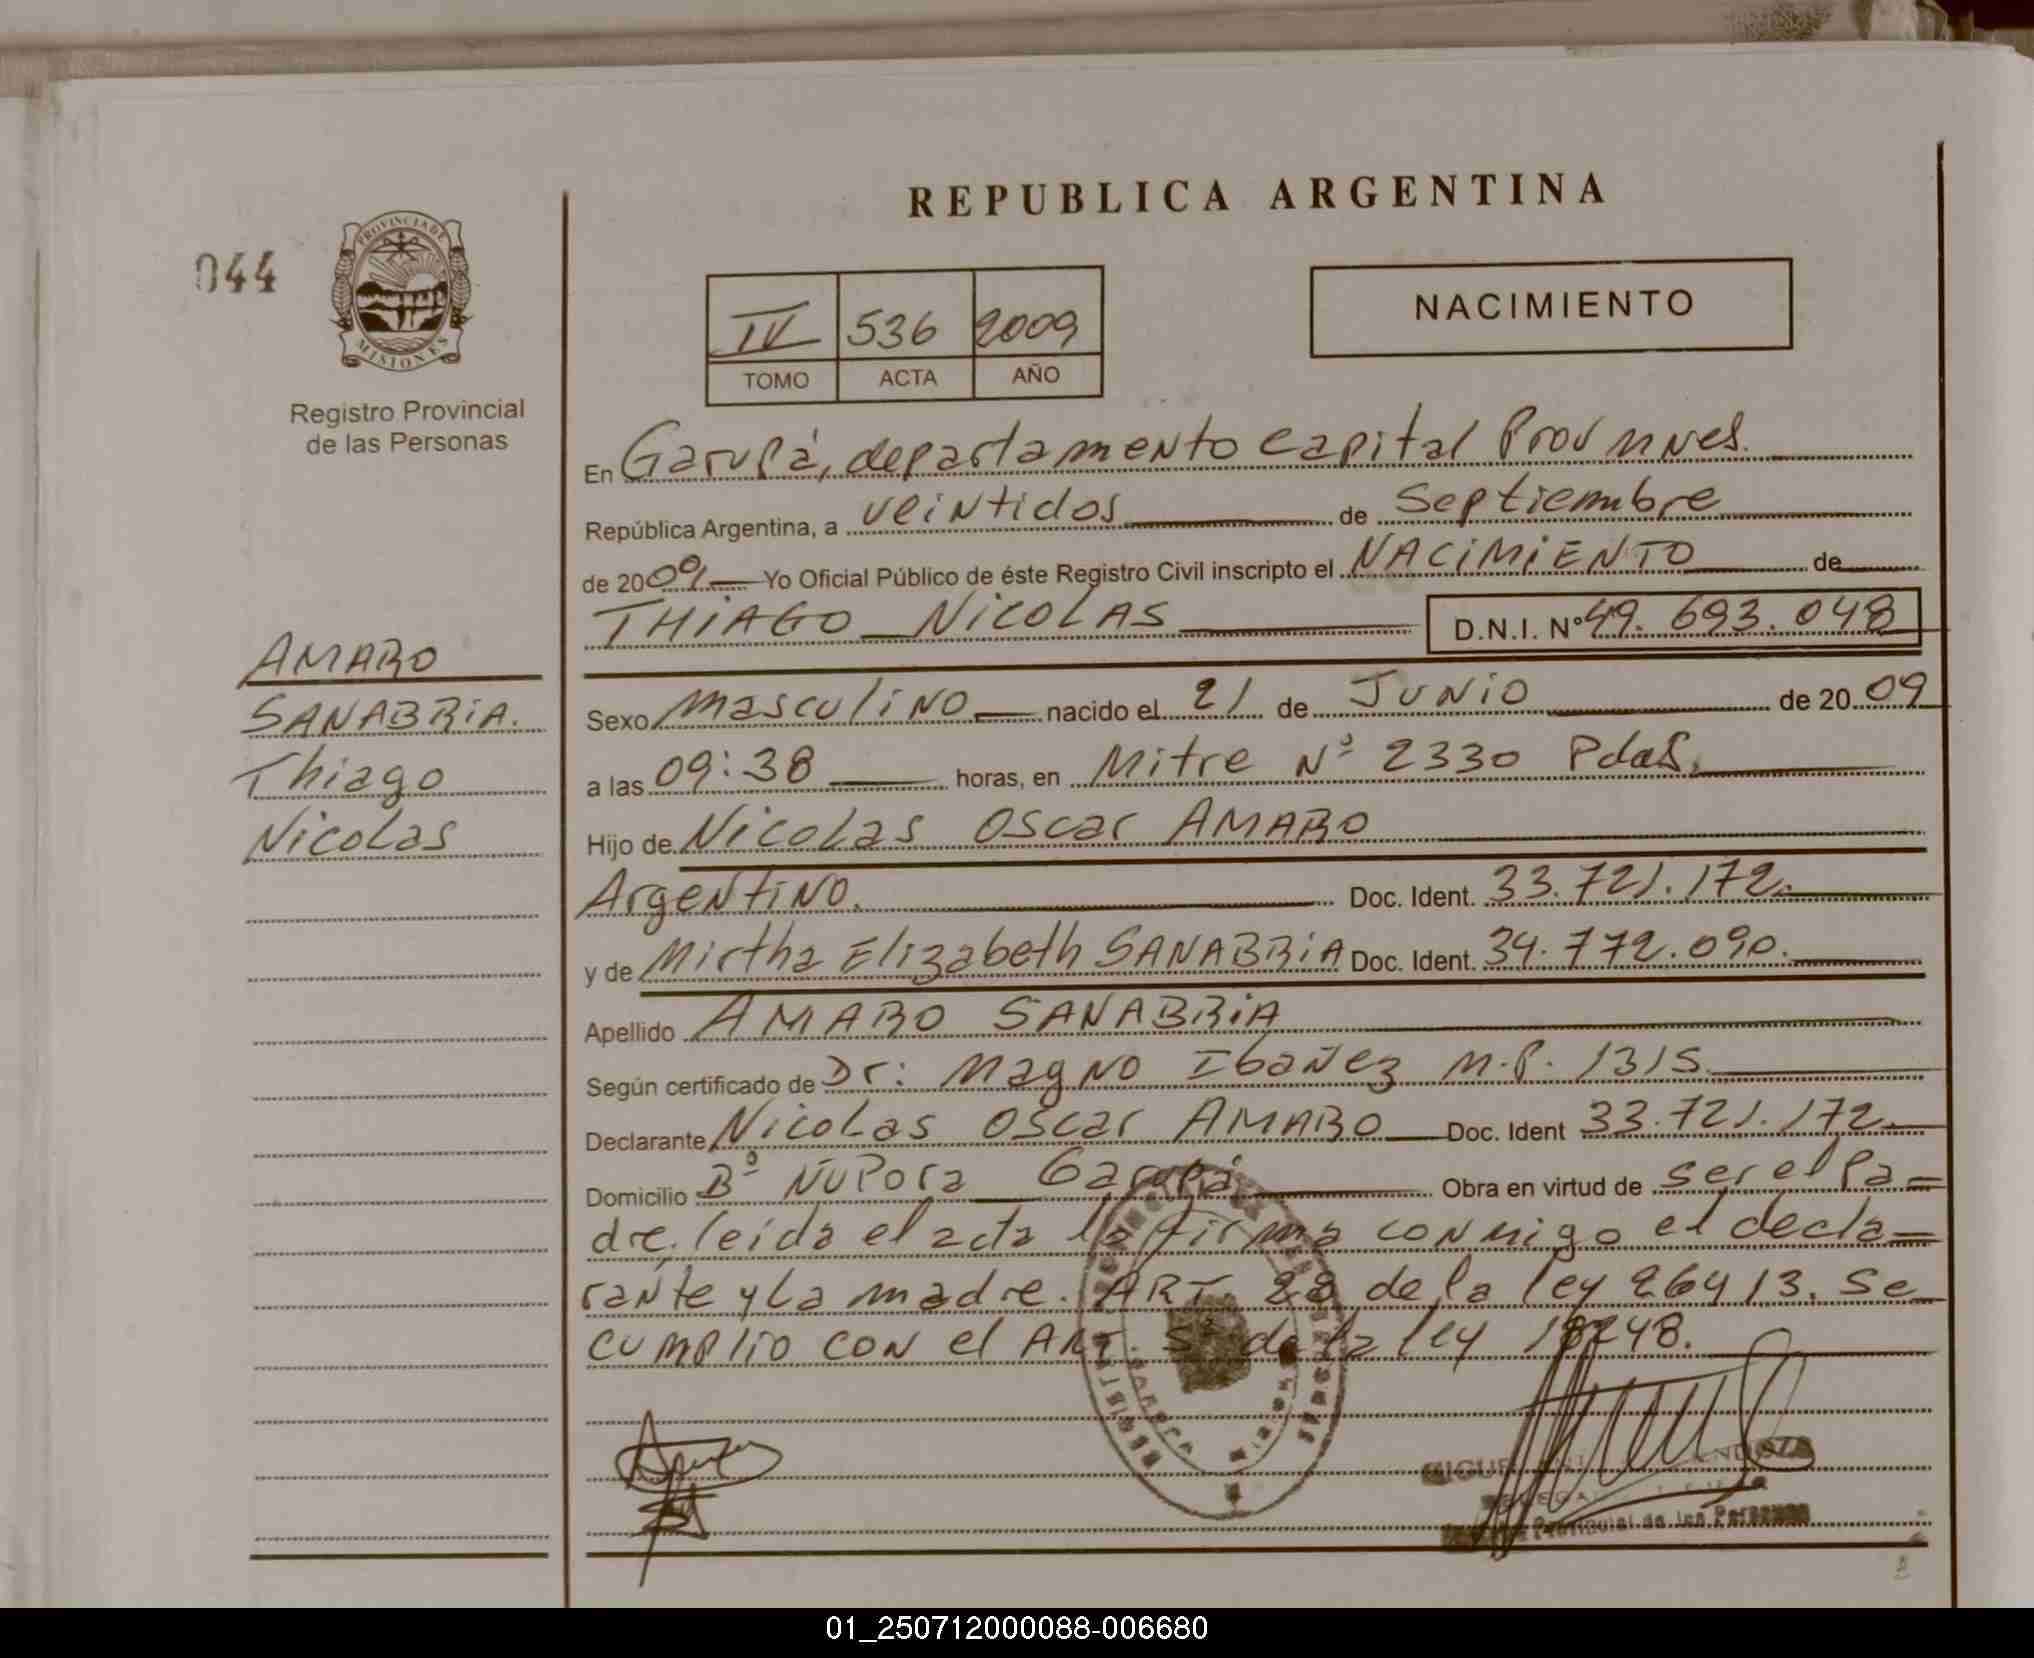 REPUBLICA ARGENTINA
044
PROVINCIA DE
MISIONES
Registro Provincial
de las Personas
IV 536 2009
TOMO ACTA AÑO
NACIMIENTO
En Garupá, departamento capital Prov Mnes.
República Argentina, a veintidos de Septiembre
de 2009 Yo Oficial Público de éste Registro Civil inscripto el NACIMIENTO de
THIAGO NICOLAS D.N.I. Nº 49.693.048
AMARO
SANABRIA.
Thiago
Nicolas
Sexo masculino nacido el 21 de JUNIO de 2009
a las 09:38 horas, en Mitre Nº 2330 Pdas.
Hijo de Nicolas Oscar AMARO
Argentino. Doc. Ident. 33.721.172.
y de Mirtha Elizabeth SANABRIA Doc. Ident. 34.772.090.
Apellido AMARO SANABRIA
Según certificado de Dr: Magno Ibañez M.P. 1315
Declarante Nicolas Oscar AMARO Doc. Ident 33.721.172.
Domicilio Bº Ñu Pora Garupá Obra en virtud de ser el Pa=
dre. leida el acta la firma conmigo el decla=
rante y la madre. ART. 28 de la ley 26413. Se
cumplio con el ART. 5º de la ley 18248.
Provincial de las Personas
01_250712000088-006680